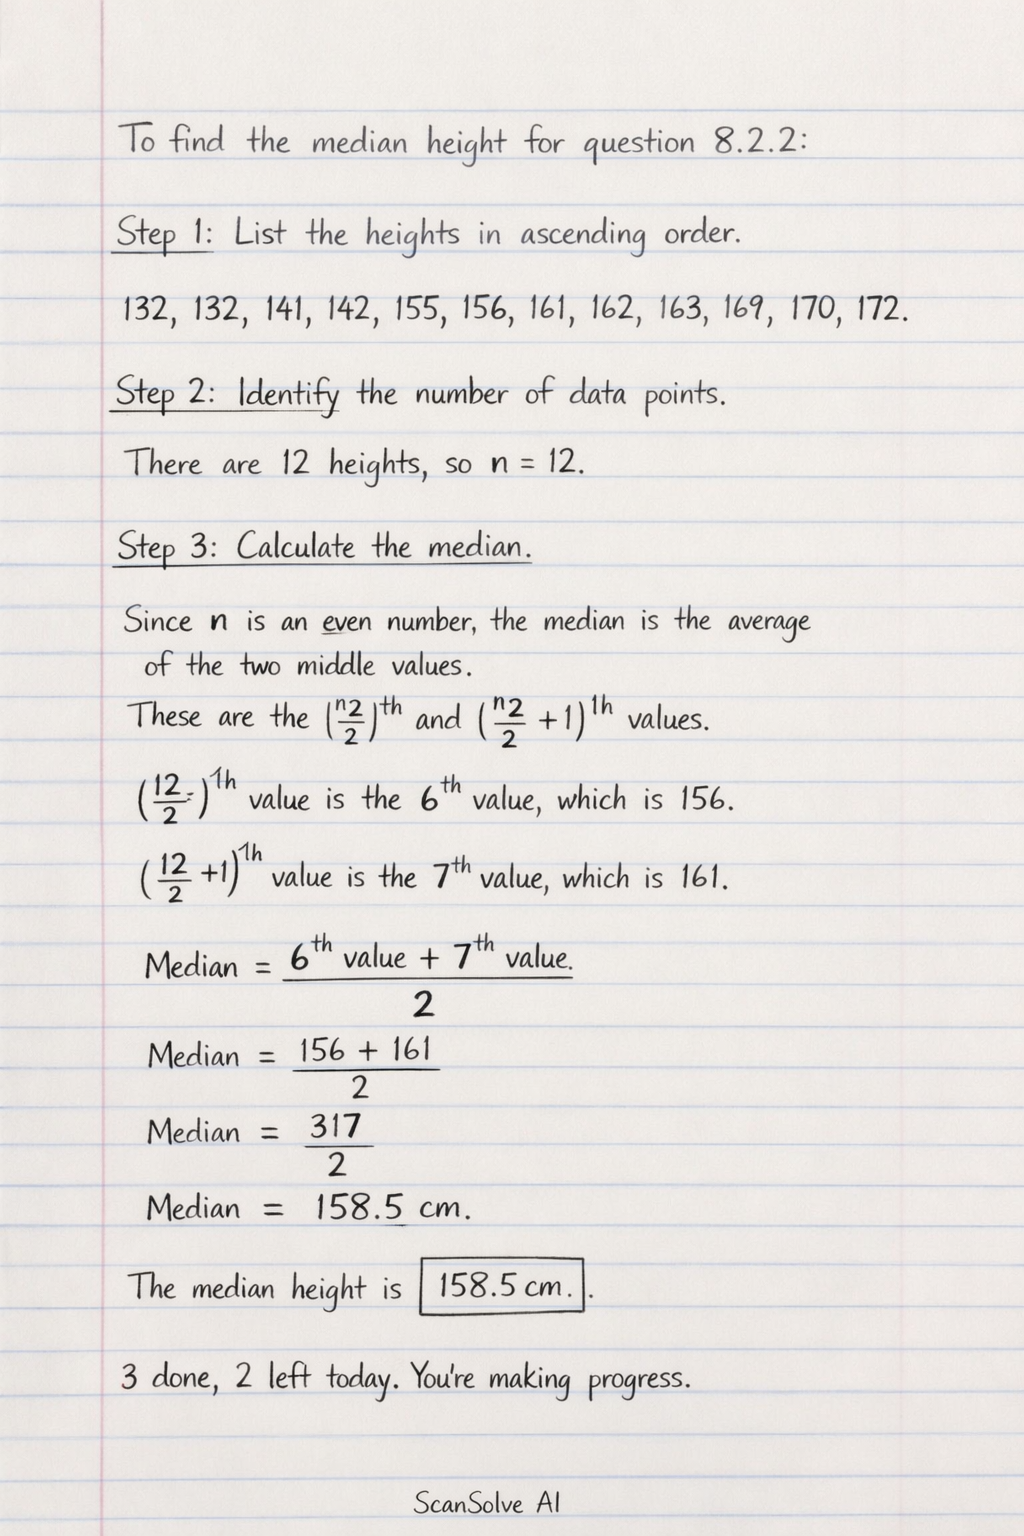 To find the median height for question 8.2.2:
Step 1: List the heights in ascending order.
132, 132, 141, 142, 155, 156, 161, 162, 163, 169, 170, 172.
Step 2: Identify the number of data points.
There are 12 heights, so n = 12.
Step 3: Calculate the median.
Since n is an even number, the median is the average
of the two middle values.
These are the (n2/2)th and (n2/2 + 1)th values.
(12/2-)th value is the 6th value, which is 156.
(12/2 +1)th value is the 7th value, which is 161.
Median = 6th value + 7th value.
2
Median = 156 + 161
2
Median = 317
2
Median = 158.5 cm.
The median height is 158.5 cm. .
3 done, 2 left today. You're making progress.
ScanSolve AI